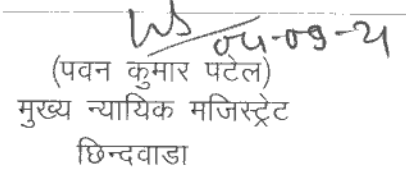 04-09-21
(पवन कुमार पटेल)
मुख्य न्यायिक मजिस्ट्रेट
छिन्दवाडा